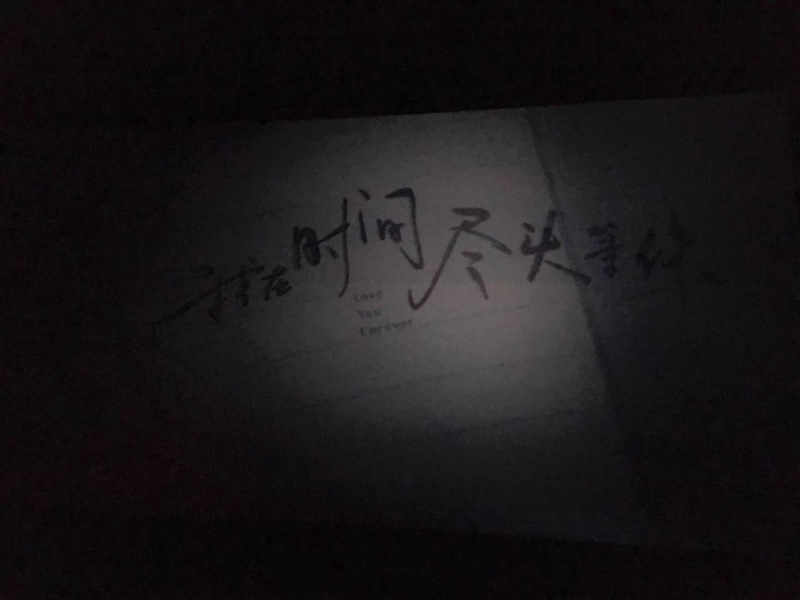 在时间尽头等你
Love
You
Forever